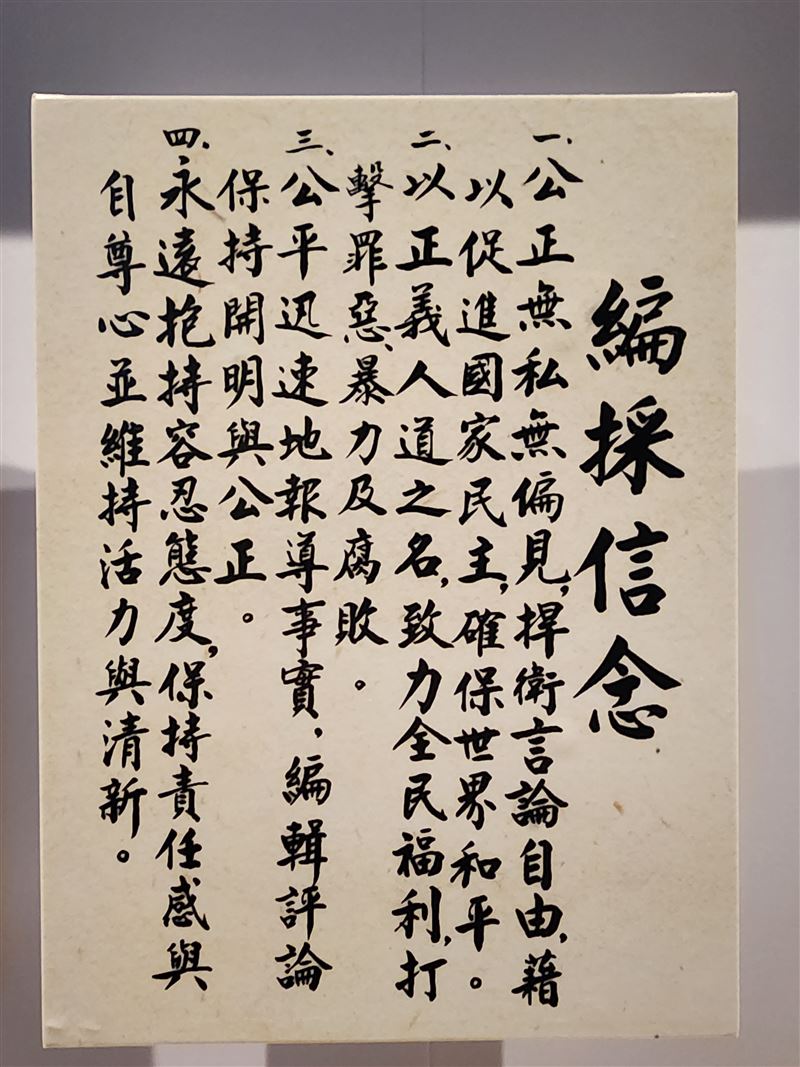 編採信念
一、公正無私無偏見，捍衛言論自由，藉
以促進國家民主，確保世界和平。
二、以正義人道之名，致力全民福利，打
擊罪惡、暴力及腐敗。
三、公平迅速地報導事實，編輯評論
保持開明與公正。
四、永遠抱持容忍態度，保持責任感與
自尊心並維持活力與清新。